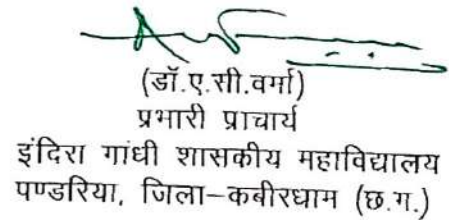 (डॉ.ए.सी.वर्मा)
प्रभारी प्राचार्य
इंदिरा गांधी शासकीय महाविद्यालय
पण्डरिया, जिला-कबीरधाम (छ.ग.)